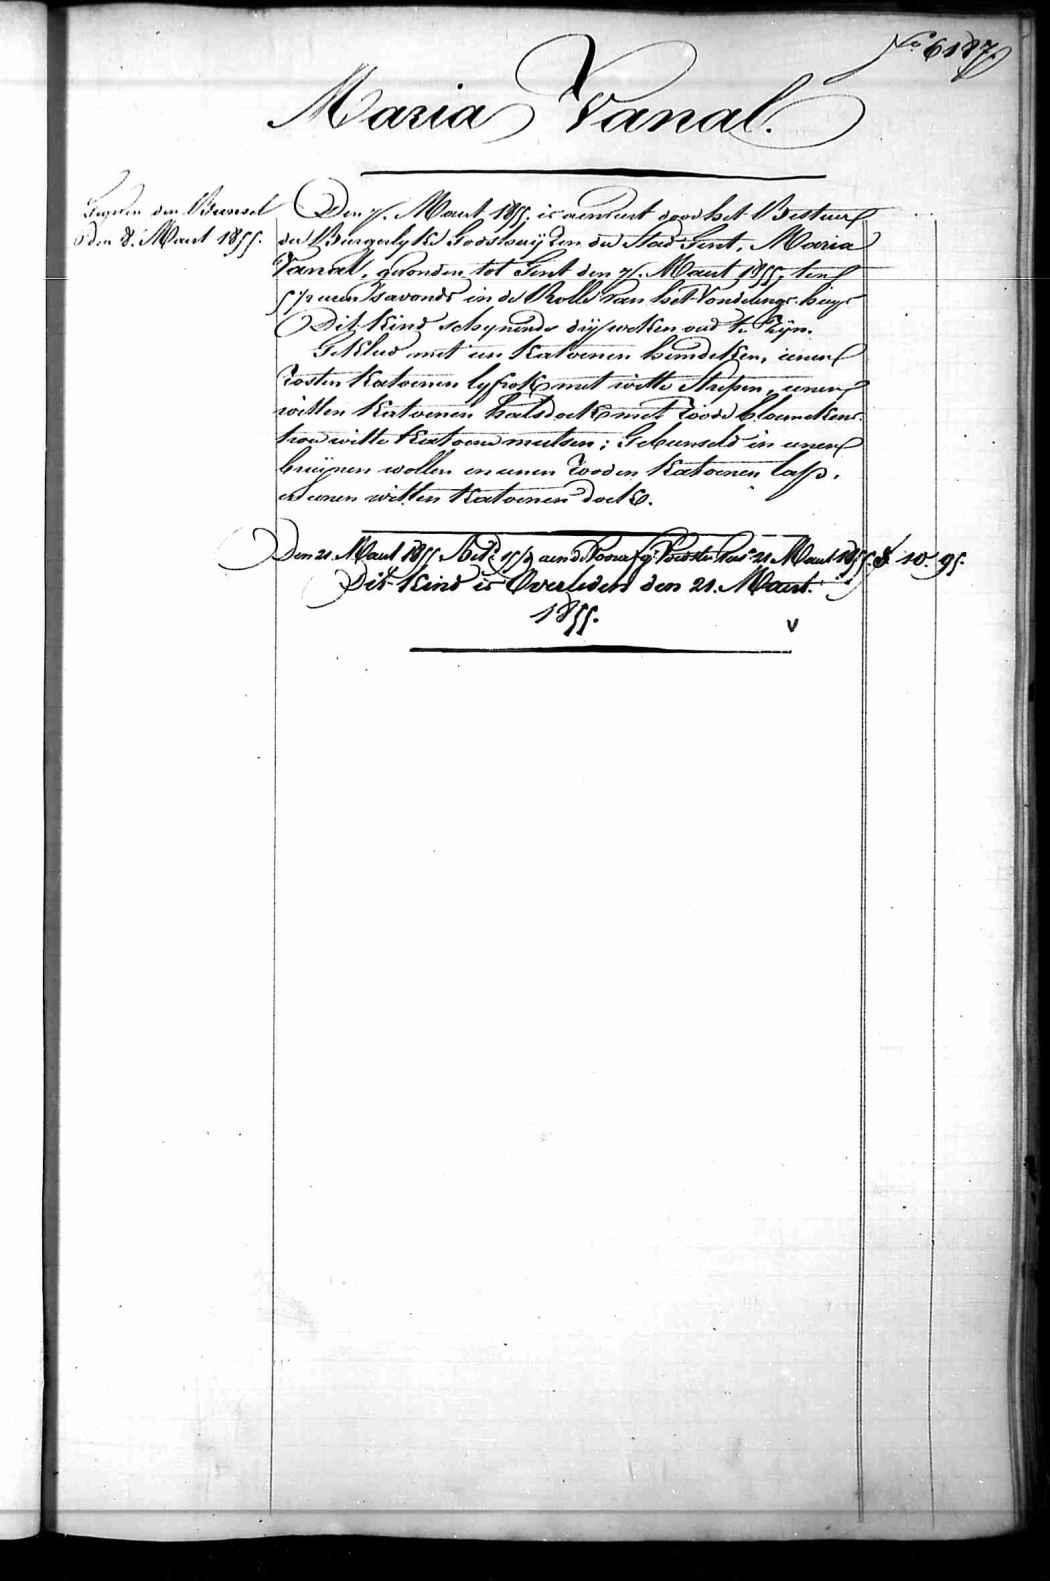 N.o 6187
Maria Vanal.
Gegeven den Bunsel
den 8. Maart 1855.
Den 7. Maart 1855. is aenveert door het Bestuur
der Burgerlyke Godshuyzen der Stad Gent, Maria
Vanal, gevonden tot Gent den 7. Maart 1855, ten
5 1/2 uren 's avonds in de Rolle van het Vondelings-huys
Dit kind schynende dry weken oud te zyn.
Gekleed met een katoenen hemdeken, eenen
rosten katoenen lyfrok met witte strepen, eenen
witten katoenen halsdoek met roode bloemekens
twee witte katoene mutsen; Gebunseld in eenen
bruynen wollen en eenen rooden katoenen lap,
en eenen witten katoenen doek.
Den 21. Maart 1855 aen de 21 Maart 1855. f 10. 95.
Dit kind is Overleden den 21. Maart.
1855.
v